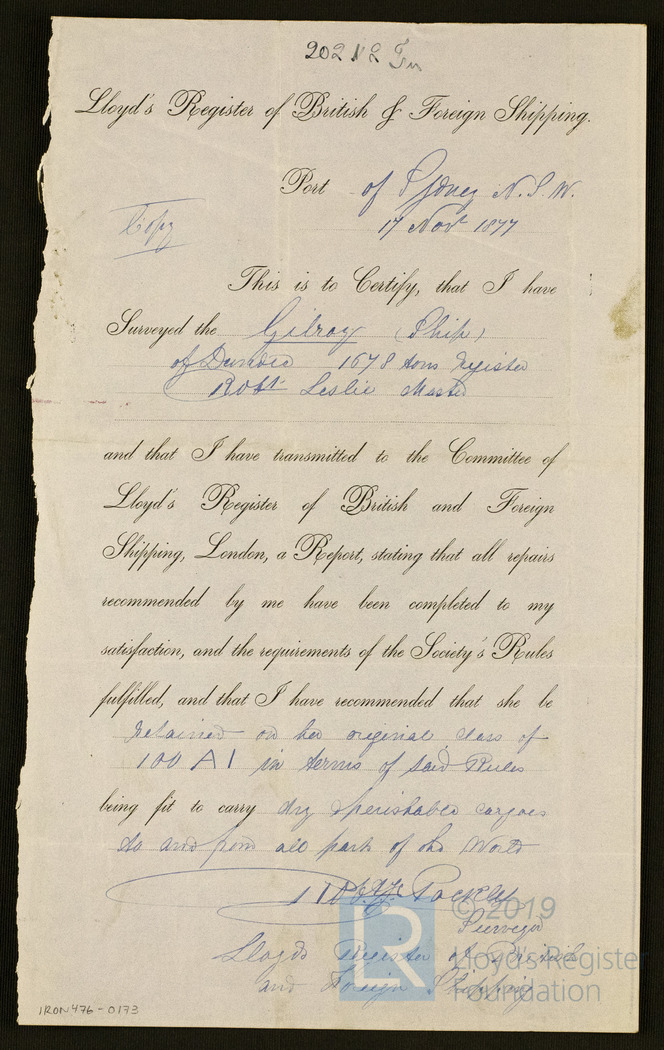 202 N2
Lloyd's Register of British & Foreign Shipping.
Port of Sydney N.S.W.
17 Novr 1877
Copy
This is to Certify, that I have
Surveyed the Gilroy (Ship)
of Dundee 1678 tons Register
Robt Leslie Master
and that I have transmitted to the Committee of
Lloyd's Register of British and Foreign
Shipping, London, a Report, stating that all repairs
recommended by me have been completed to my
satisfaction, and the requirements of the Society's Rules
fulfilled, and that I have recommended that she be
retained on her original class of
100 A1 in terms of said Rules
being fit to carry dry & perishable cargoes
to and from all parts of the World
Surveyor
Lloyds Register of British
and Foreign Shipping
© 2019
Lloyd's Register
Foundation
IRON476-0173